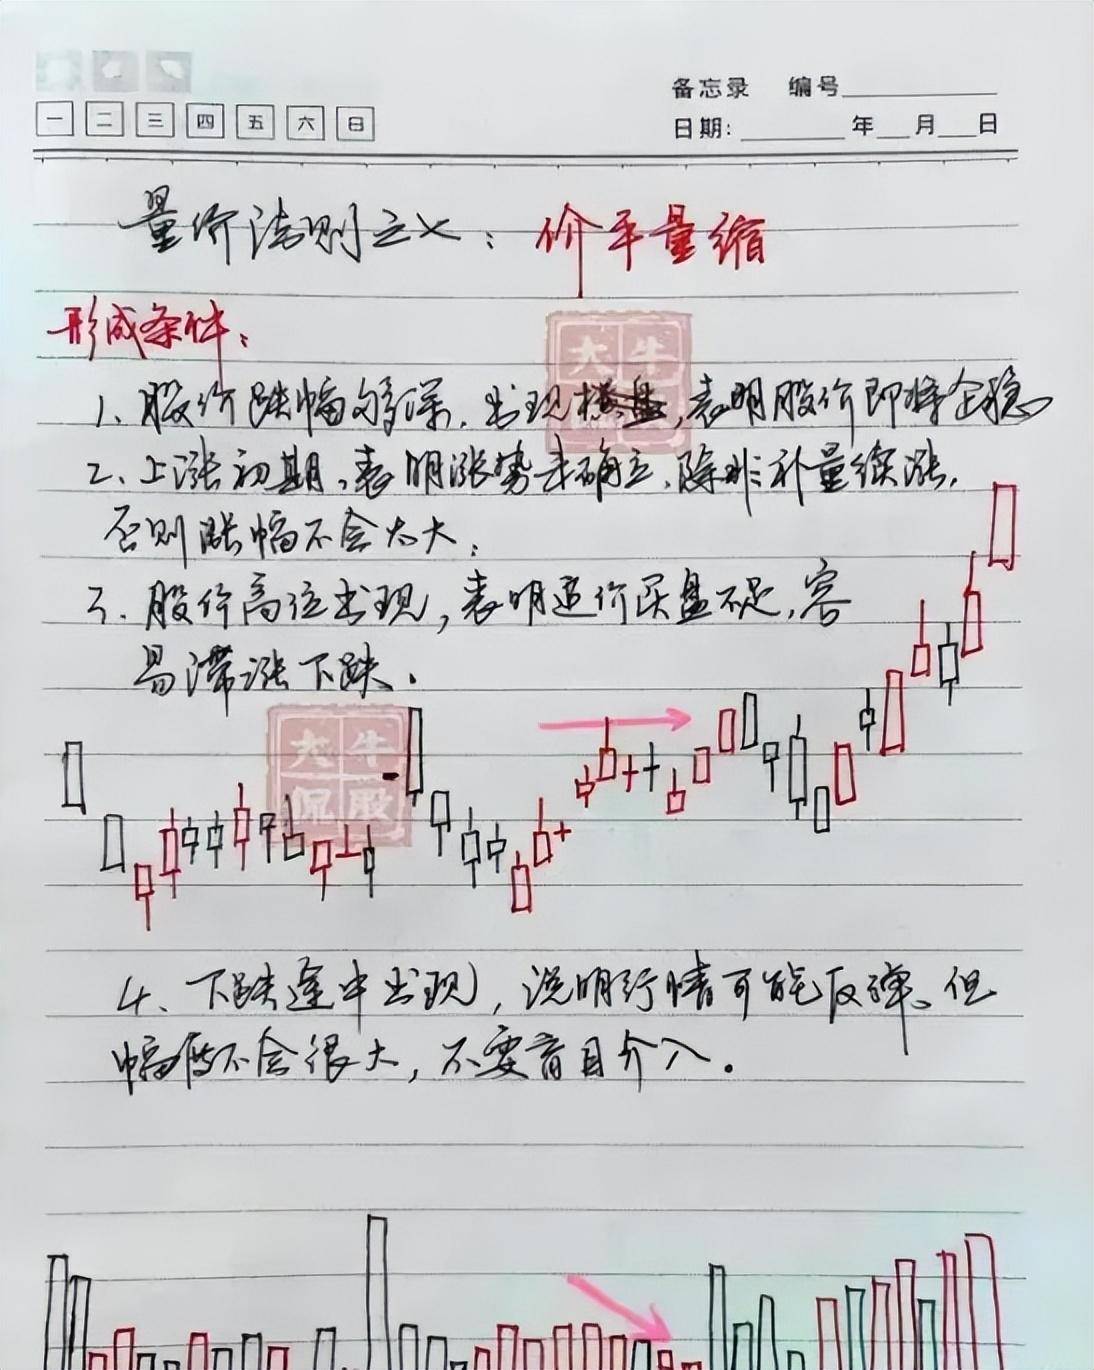 备忘录 编号
一 二 三 四 五 六 日
日期: 年 月 日
量价法则之七：价平量缩
形成条件：
大牛
侃股
1、股价跌幅够深，出现横盘，表明股价即将企稳
2、上涨初期，表明涨势未确立，除非补量续涨，
否则涨幅不会太大；
3、股价高位出现，表明追价买盘不足，容
易滞涨下跌．
大牛
侃股
4、下跌途中出现，说明行情可能反弹、但
幅度不会很大，不要盲目介入。